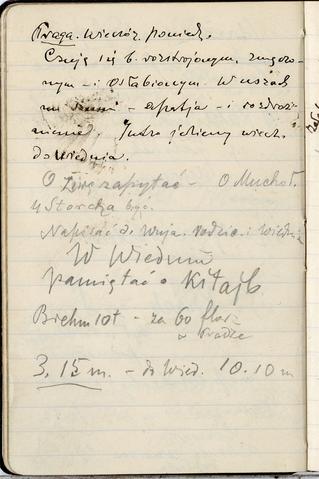 Praga. Wieczór, poniedz.
Czuję się b. rozstrojonym, zmęczo-
nym - i osłabionym. W uszach
mi szumi - apatja - i rozdraż-
nienie. Jutro jedziemy wiecz.
do Wiednia.
O zapytać - O Muchot.
u Storcha być.
Napisać do Wuja. rodzic. i Wiednia
W Wiedniu
pamiętać o Kitajb.
Brehm 10t - za 60
w Pradze
3.15 m. - do Wied. 10.10 m